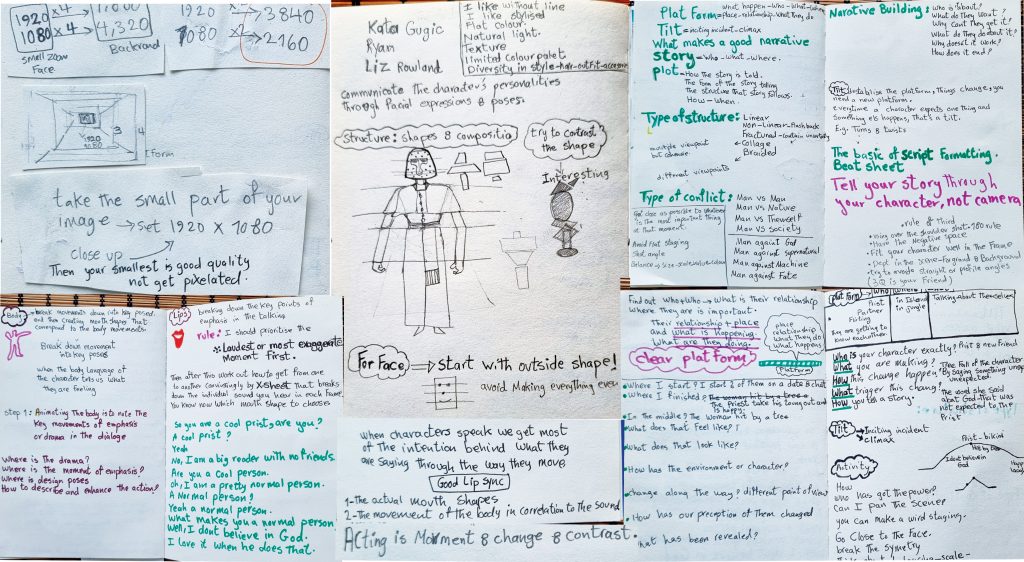 1920 × 4
1080
4,320
Backrand
small zoom
Face
1920
1080 × 4
→3840
→2160
1920
1080
3
4
Form
take the small part of your
image → set 1920 × 1080
close up
Then your smallest is good quality
not get pixelated.
Kata Gugic
Ryan
Liz Rowland
I like without line
I like stylised
Flat colour.
Natural light.
Texture
limited colour palet
Diversity in style-hair-outfit-
communicate the character's personalities
through facial expressions & poses.
Structure: Shapes & compositio
try to contrast
the shape
Interesting
For Face ⇒ start with outside shape!
avoid Making everything even
when characters speak we get most
of the intention behind what they
are saying through the way they move
Good Lip sync
1-the actual mouth shapes
2-The movement of the body in correlation to the sound
Acting is Movment & change & contrast.
Body
break movements down into key poses
and then creating mouth shapes that
correspond to the body movements.
Break down movement
into key poses
when the body language of
the character tells us what
they are feeling
step 1: Animating the body is to note the
key movements of emphasis
or drama in the dialoge
Where is the drama?
Where is the moment of emphasis?
Where is design poses
How to describe and enhance the action?
Lips
breaking down the key points of
emphasis in the talking
rule: I should prioritise the
Loudest or most
Moment first.
Then after this work out how to get from one
to another convincingly by X.sheet that breaks
down the individual sound you hear in each frame
You know now which mouth shape to chooses
So you are a cool prist, are you?
A cool prist?
Yeah
No, I am a big reader with no friends.
Are you a cool person.
oh, I am a pretty normal person.
A Normal person?
Yeah a normal person.
What makes you a normal person
Well, I dont believe in God.
I love it when he does that.
Plat Form = what happen-Who-What-
Place-relationship-What They do
Tilt = inciting incident-climax
What makes a good narrative
story = Who-what-where.
plot = How the story is told.
The form of the story telling
The structure that story follows.
How-when.
Type of structure:
Linear
Non-Linear-flashback
Fractured-
multiple viewpoint
but comune
Collage
Braided
different viewpoints
Type of conflict:
Man vs Man
Man vs Nature
Man vs Themself
Man vs Society
Man against God
Man against supernatural
Man against Machine
Man against Fate
Get close as possible to whatever
is the most important thing
at that moment.
Avoid flat staging
Shot angle
Balance → size-scale-value-colour
Narative Building:
who is about?
What do They want?
Why cant They get it?
What do They do about it?
Why doesn't it work?
How does it end?
Tilt: Instabilise the platform, Things change, you
need a new platform.
everytime a character expects one thing and
Something els happens, That's a tilt.
E.g. Turns & twists
The basic of script formatting.
Beat sheet
Tell your story through
your character, not camera
rule of third
using over the shoulder shot-180 rule
Have the Negative space
Fit your character well in the Frame
Dept in the scene-forground & Background
try to avoid straight or profile angles
(3Q is your friend)
Find out who & who → What is their relationship
Where They are is important.
Their relationship + place
and what is happening.
What are they doing.
clear platform
place
relationship
What they do
What happens
Platform
Where I start? I start 2 of them on a date & chat
Where I finished? the woman hit by a tree
The priest take his
In the middle? The woman hit by a tree
What does that feel like?
What does that look like?
How has the environment or character?
change along the way? different point of view
How has our preception of them changed
hat has been revealed?
plat form
Prist
Partner
Flirting
They are getting to
know eachother
in Island
Jungle
Talking about themselves
Who is your character exactly? Prist & new friend
What you are making?
How this change happen?
What trigger this chang?
How you tell a story.
Free Fall of the character
By saying something
unexpected.
The word she said
about God that was
not expected to the
Prist
Tilt → Inciting incident
climax
Activity
How
who has got the power?
Can I pan the scene?
you can make a wird staging.
Go Close to the Face.
break the symetry